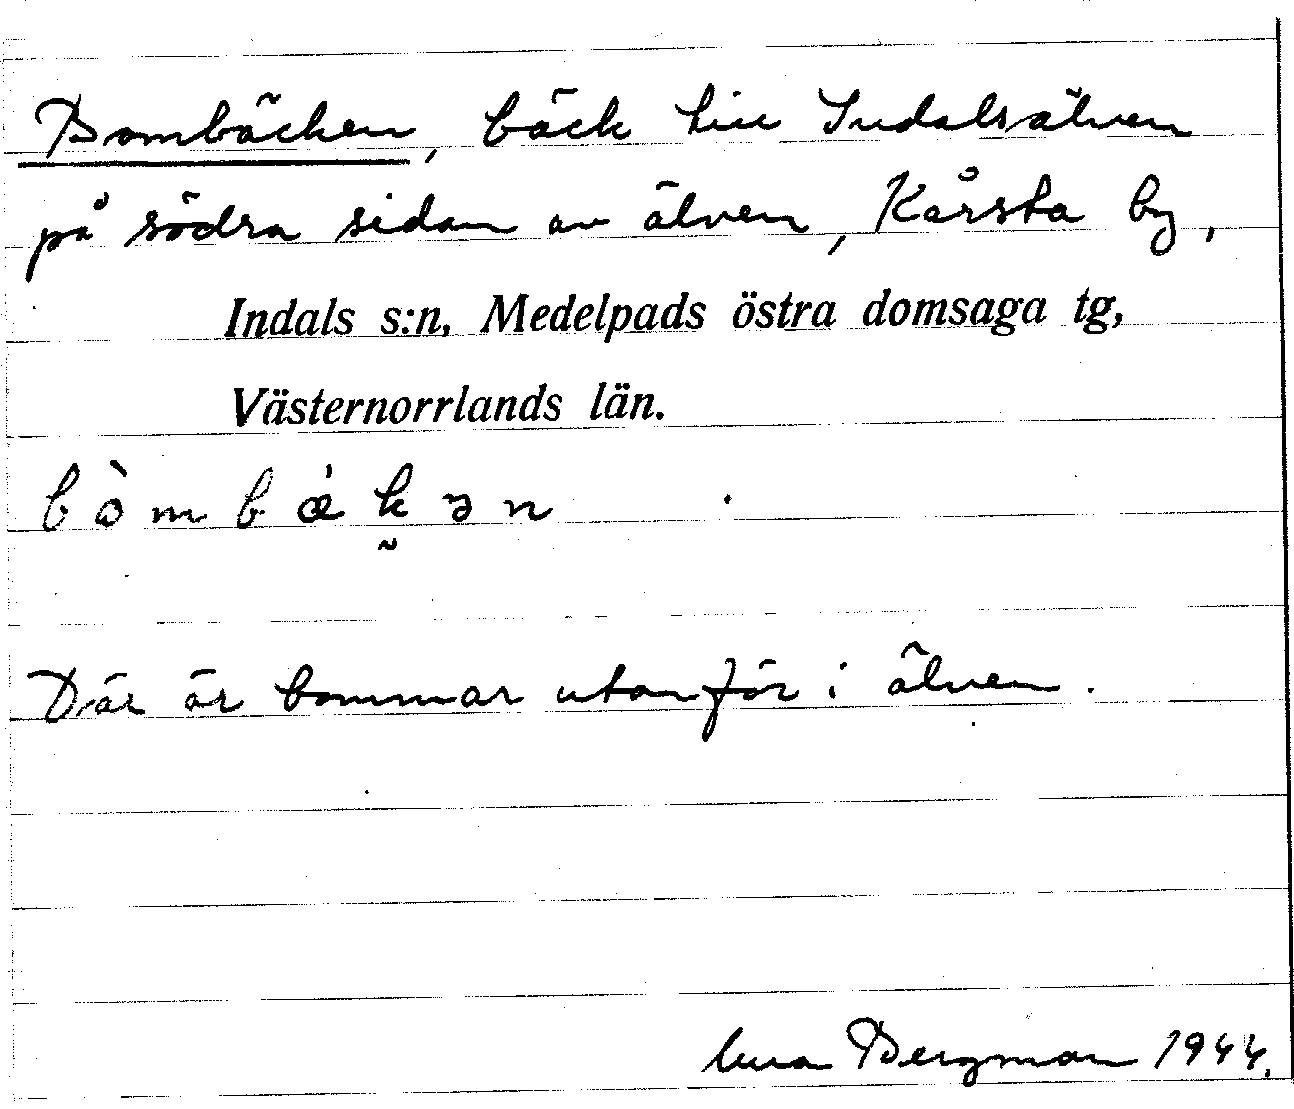 Bombäcken, bäck till Indalsälven
på södra sidan av älven, Kårsta by,
Indals s:n, Medelpads östra domsaga tg,
Västernorrlands län.
b ò m b æ̀ k ə n
Där är bommar utanför i älven.
Bergman 1944.